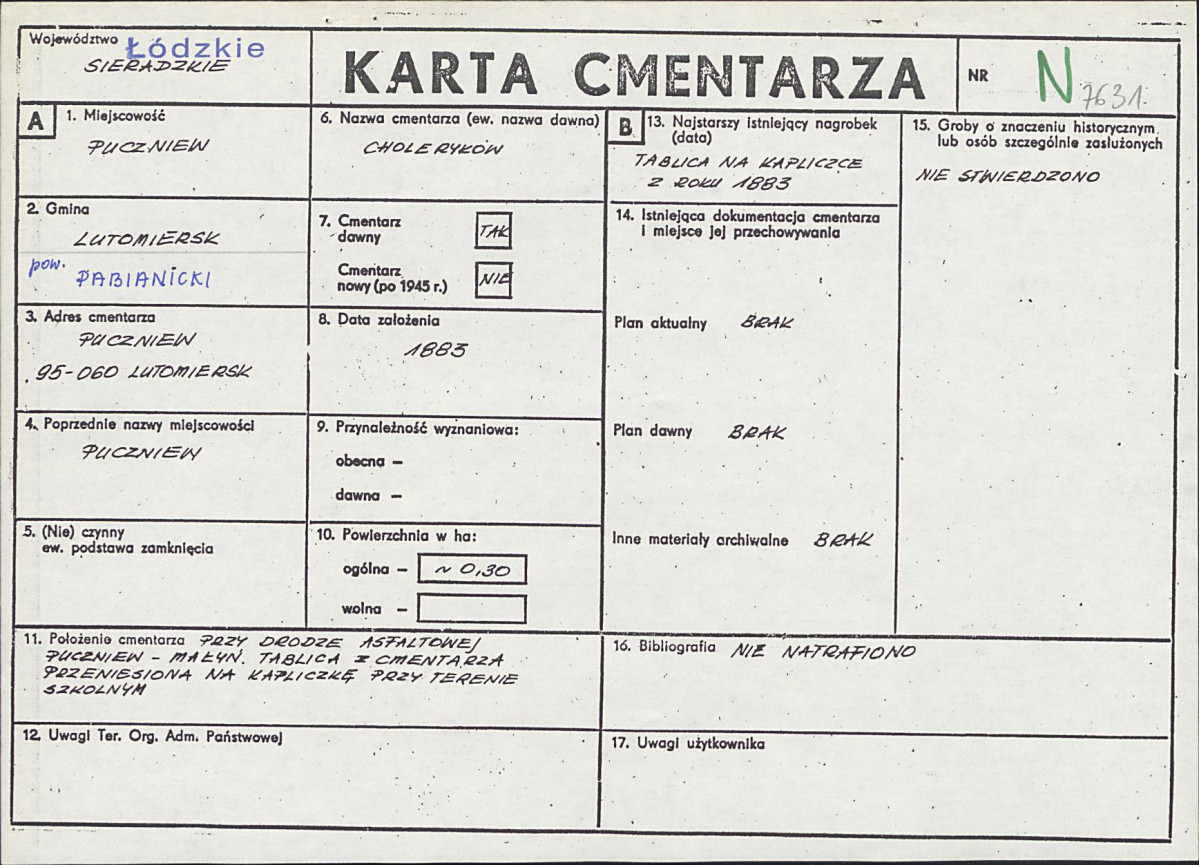 Województwo Łódzkie
SIERADZKIE
KARTA CMENTARZA
NR N 7631.
A
1. Miejscowość
PUCZNIEW
2. Gmina
LUTOMIERSK
pow. PABIANICKI
3. Adres cmentarza
PUCZNIEW
95-060 LUTOMIERSK
4. Poprzednie nazwy miejscowości
PUCZNIEW
5. (Nie) czynny
ew. podstawa zamknięcia
6. Nazwa cmentarza (ew. nazwa dawna)
CHOLERYKÓW
7. Cmentarz
dawny TAK
Cmentarz
nowy (po 1945 r.) NIE
8. Data założenia
1883
9. Przynależność wyznaniowa:
obecna –
dawna –
10. Powierzchnia w ha:
ogólna – ~ 0,30
wolna –
11. Położenie cmentarza PRZY DRODZE ASFALTOWEJ
PUCZNIEW - MAŁYŃ. TABLICA Z CMENTARZA
PRZENIESIONA NA KAPLICZKĘ PRZY TERENIE
SZKOLNYM
12. Uwagi Ter. Org. Adm. Państwowej
B
13. Najstarszy istniejący nagrobek
(data)
TABLICA NA KAPLICZCE
Z ROKU 1883
14. Istniejąca dokumentacja cmentarza
i miejsce jej przechowywania
Plan aktualny BRAK
Plan dawny BRAK
Inne materiały archiwalne BRAK
15. Groby o znaczeniu historycznym
lub osób szczególnie zasłużonych
NIE STWIERDZONO
16. Bibliografia NIE NATRAFIONO
17. Uwagi użytkownika